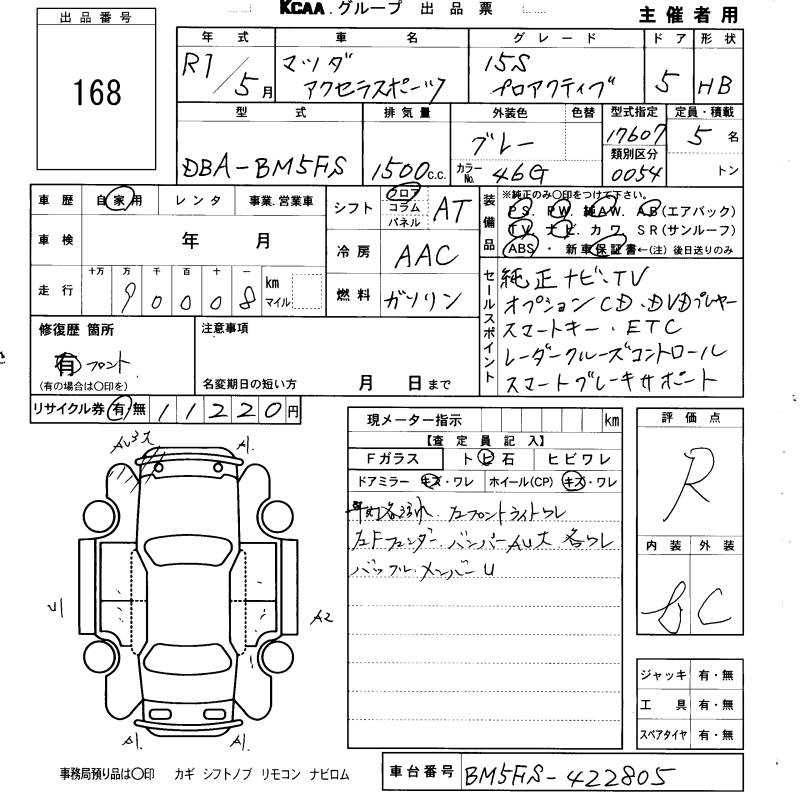 KCAA.グループ 出品票
主催者用
出品番号
168
年式 車名 グレード ドア 形状
R1/5月 マツダ アクセラスポーツ 15S プロアクティブ 5 HB
型式 排気量 外装色 色替 型式指定 定員・積載
DBA-BM5FS 1500c.c. グレー 17607 5名
カラーNo. 46G 類別区分 0054 トン
車歴 自家用 レンタ 事業.営業車
シフト フロア コラム パネル AT
装備品 ※純正のみ〇印をつけて下さい。
PS. PW. 純AW. AB(エアバック)
TV. ナビ. カワ SR(サンルーフ)
ABS・新車保証書←(注)後日送りのみ
車検 年 月
冷房 AAC
走行 十万 万 千 百 十 一 km マイル
90008
燃料 ガソリン
セールスポイント
純正ナビ・TV
オプションCD・DVDプレヤー
スマートキー・ETC
レーダークルーズコントロール
スマートブレーキサポート
修復歴 箇所
有 フロント
(有の場合は〇印を)
注意事項
名変期日の短い方 月 日まで
リサイクル券 有 無 11220円
現メーター指示 km
【査定員記入】
Fガラス トビ石 ヒビワレ
ドアミラー キズ・ワレ ホイール(CP) キズ・ワレ
左フロントライトワレ
左Fフェンダー.バンパーAU大 各ワレ
バッフル.メンバーU
評価点
R
内装 外装
C
AU3大
A1
U1
A2
A1
A1
ジャッキ 有・無
工具 有・無
スペアタイヤ 有・無
事務局預り品は〇印 カギ シフトノブ リモコン ナビロム
車台番号 BM5FS-422805